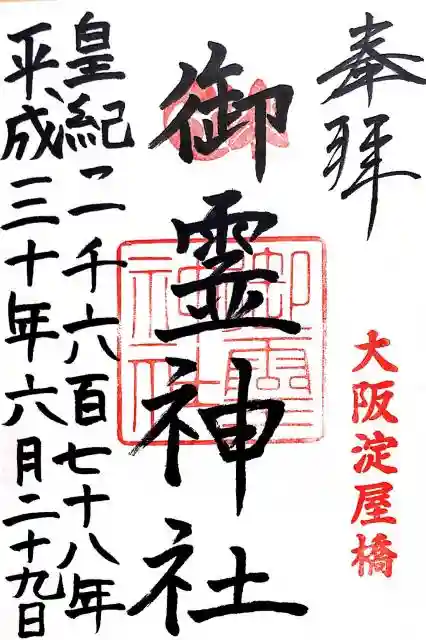 奉拝
大阪淀屋橋
御霊神社
御霊神社
皇紀二千六百七十八年
平成三十年六月二十九日